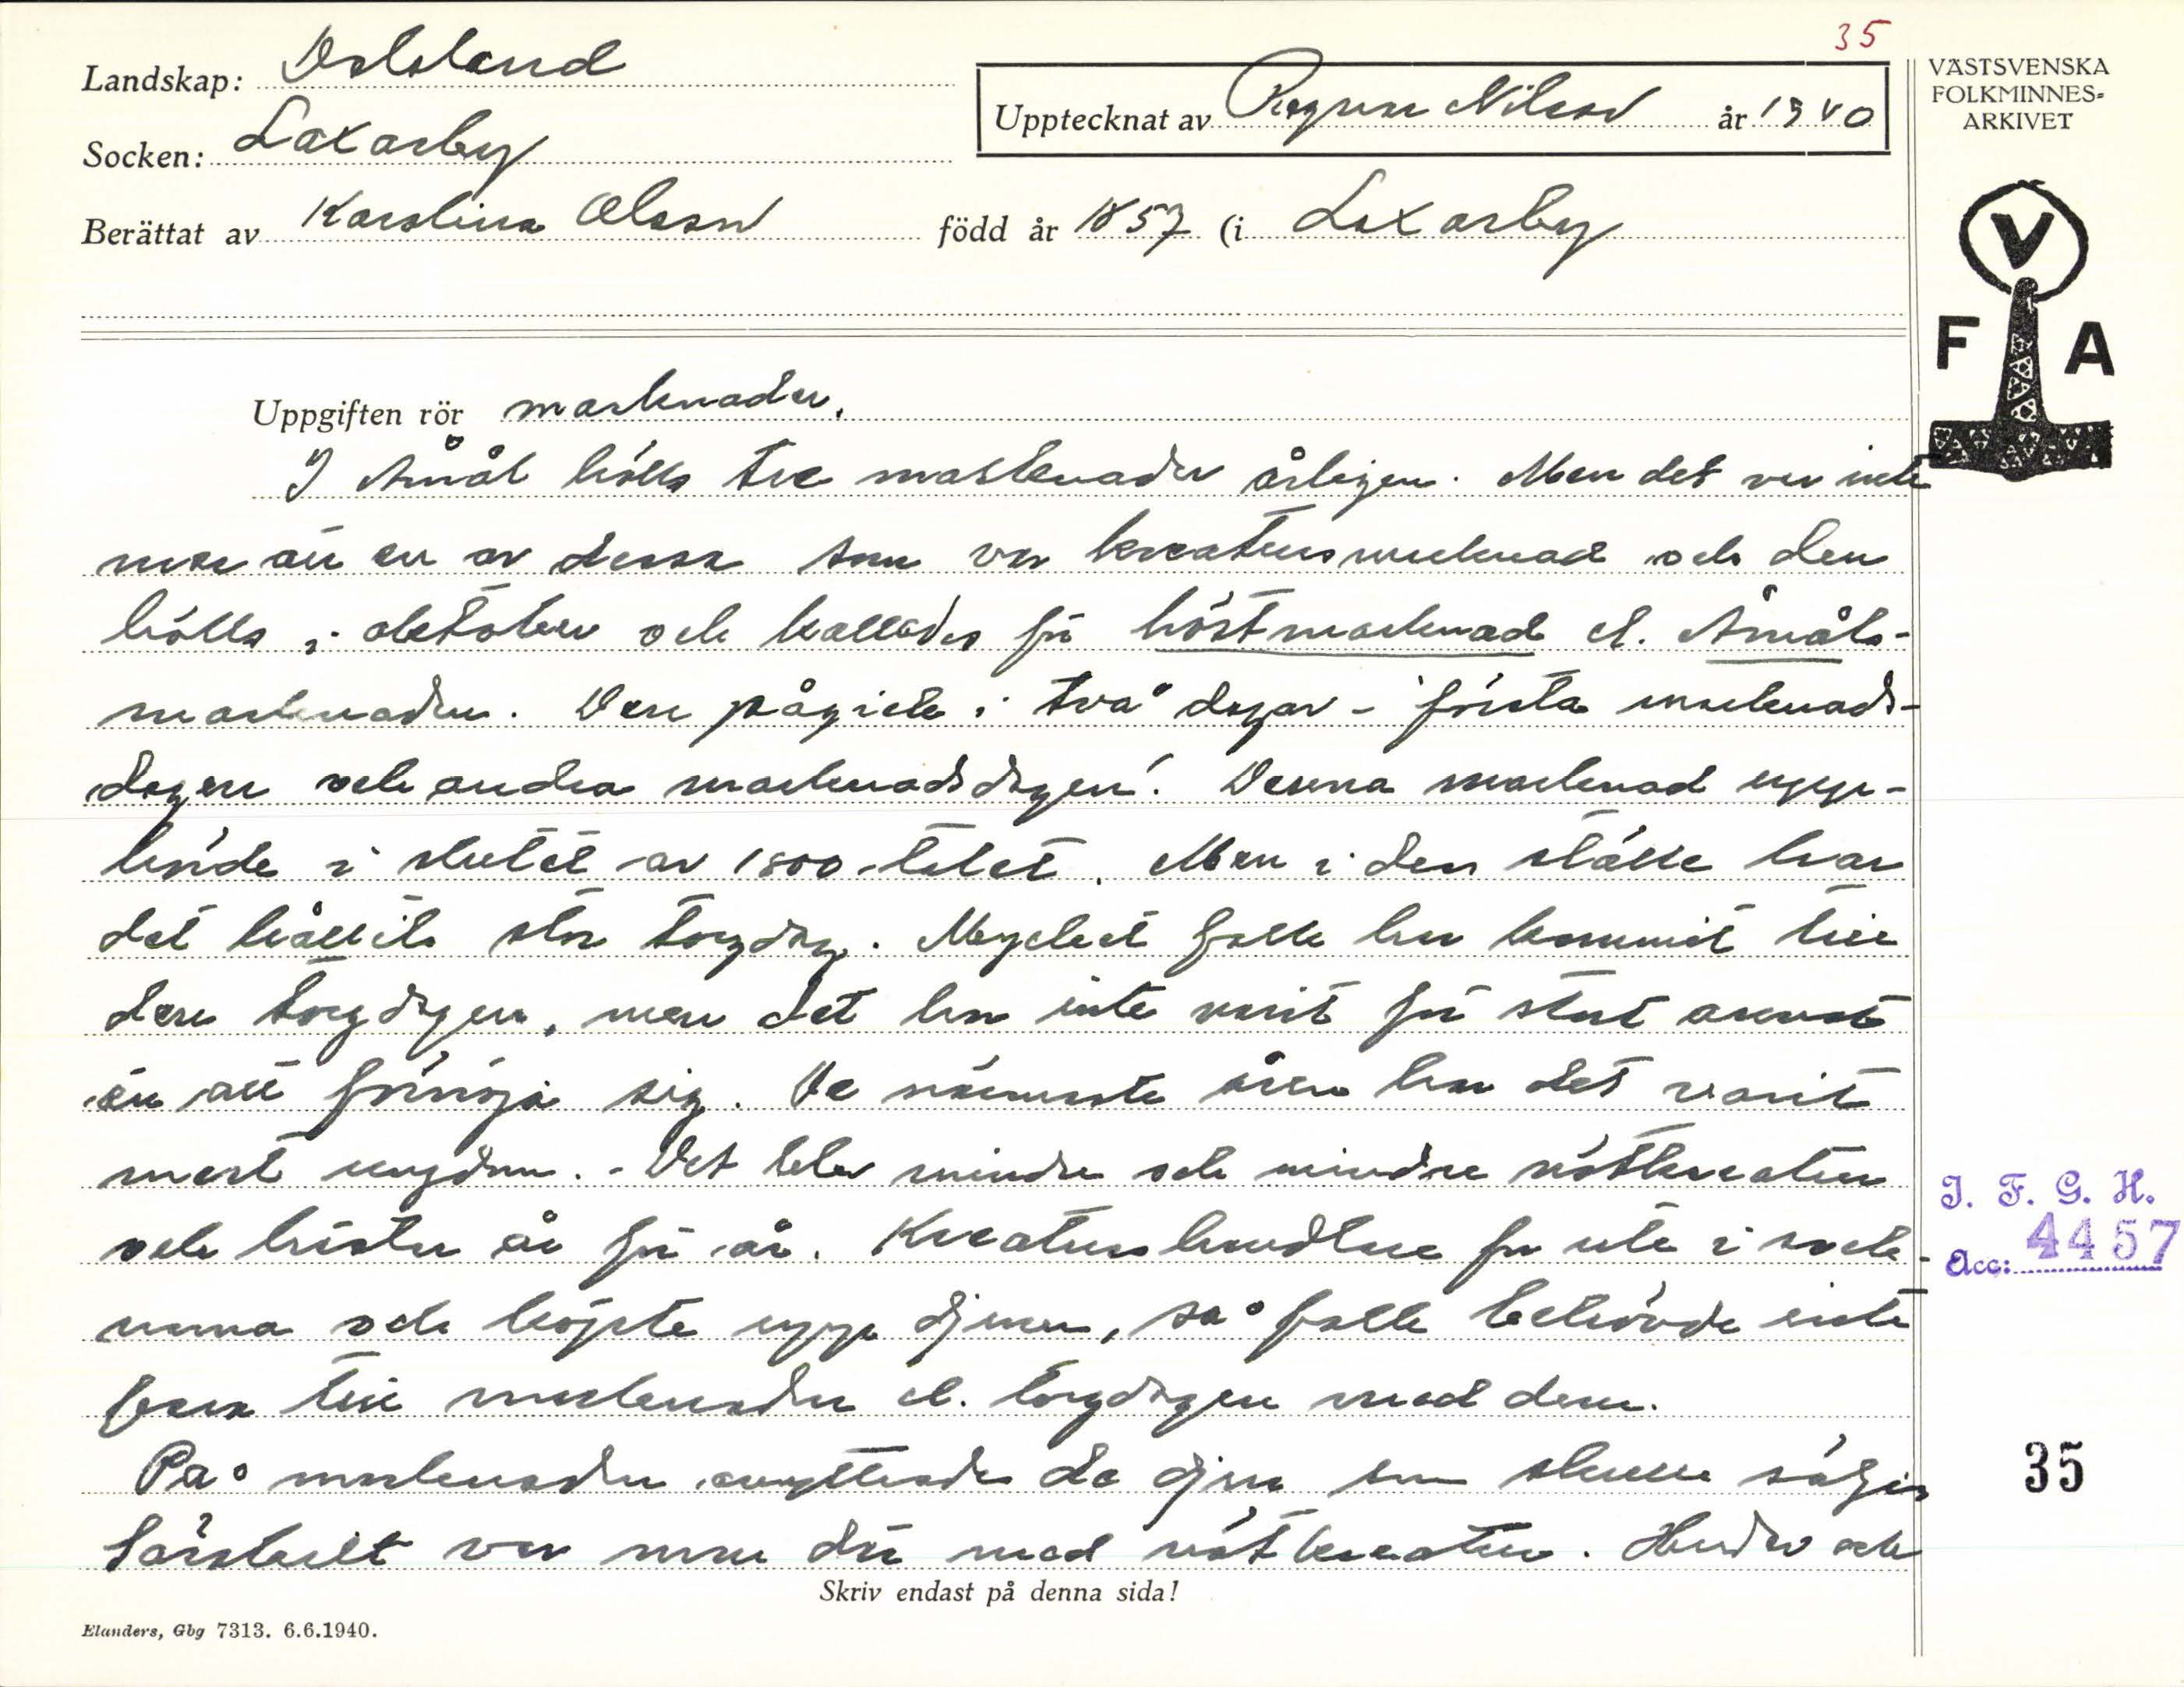 35
Landskap: Dalsland
Socken: Laxarby
Upptecknat av Ragnar Nilsson år 1940
Berättat av Karolina Olsson född år 1857 (i Laxarby
VÄSTSVENSKA
FOLKMINNES-
ARKIVET
V
F A
Uppgiften rör marknader.
I Åmål hölls tre marknader årligen. Men det var inte
mer än en av dessa som var kreatursmarknad och den
hölls i oktober och kallades för höstmarknad el. Åmåls-
marknaden. Den pågick i två dagar - första marknads-
dagen och andra marknadsdagen. Denna marknad upp-
hörde i slutet av 1800-talet. Men i den ställe har
det hållits stor torgdag. Mycket folk har kommit till
den torgdagen, men det har inte varit för stort annat
än att förnöja sig. De närmaste åren har det varit
mest ungdom. - Det blev mindre och mindre nötkreatur
och hästar år för år. Kreaturshandlare for ute i sock-
narna och köpte upp djuren, så folk behövde inte
fara till marknaden el. torgdagen med dem.
På marknaden avyttrades de djur som skulle säljas
Särskilt var man där med nötkreatur. Hudar och
J. F. G. H.
Acc: 4457
35
Skriv endast på denna sida!
Elanders, Gbg 7313. 6.6.1940.